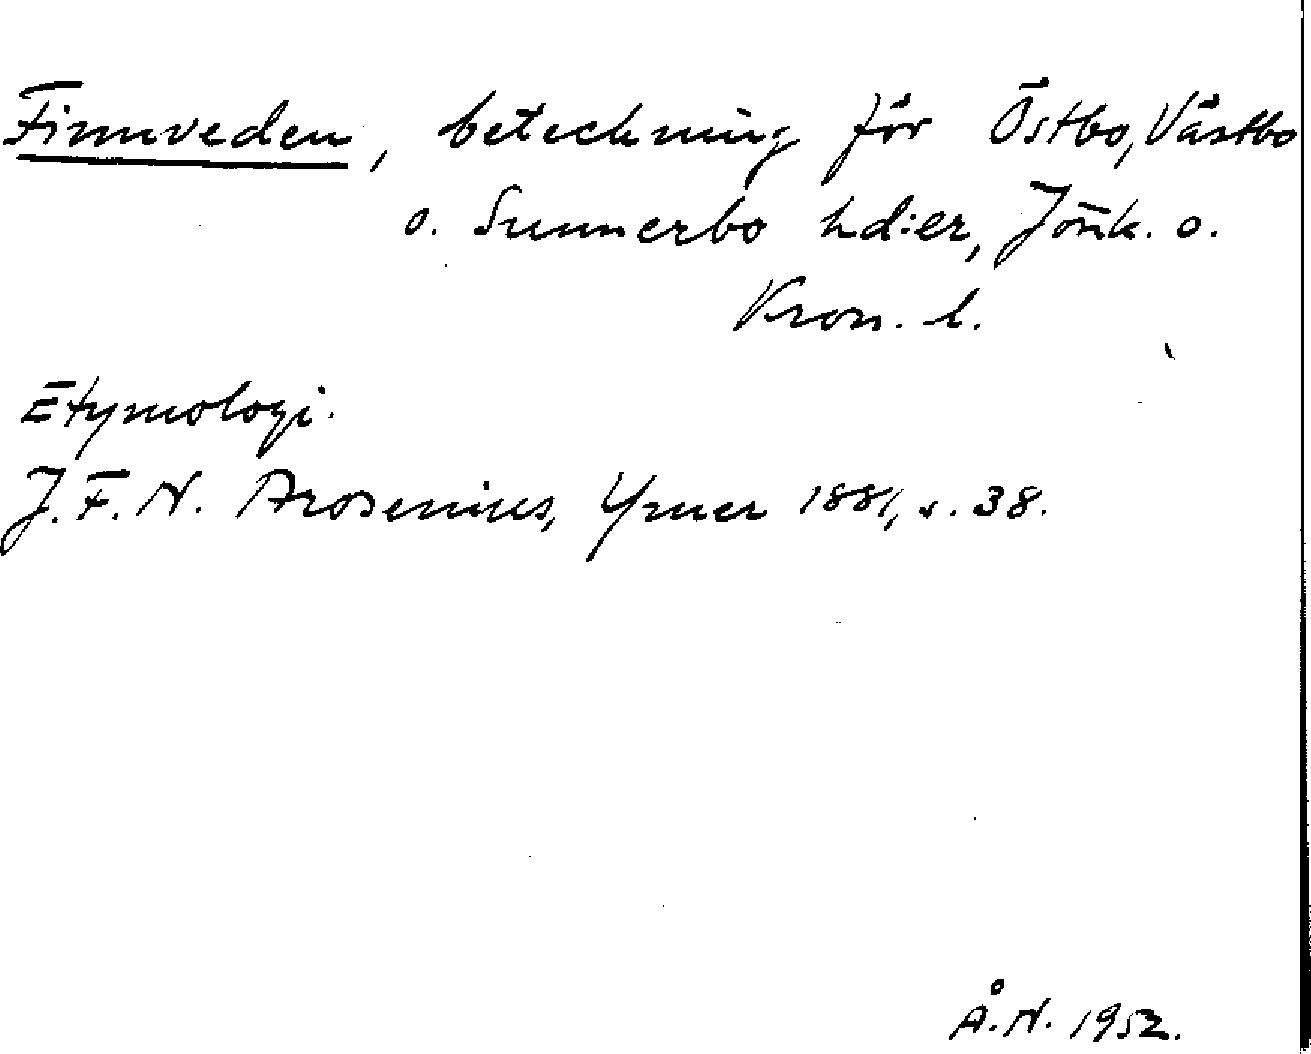 Finnveden, beteckning för Östbo, Västbo
o. Sunnerbo hd:er, Jönk. o.
Kron. l.
Etymologi.
J. F. N. Arosenius, Ymer 1881, s. 38.
Å. N. 1952.